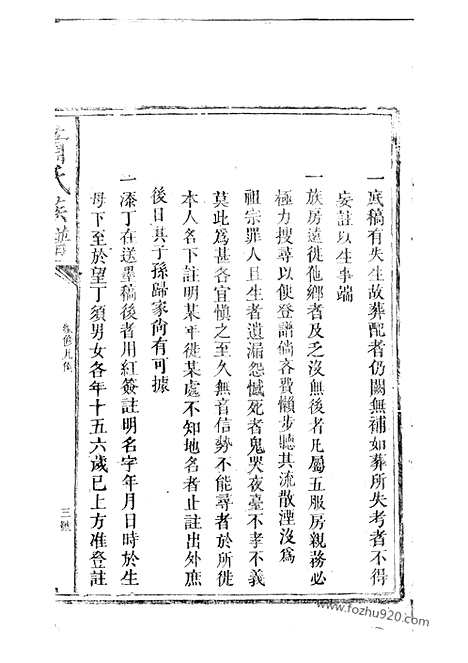 一底稿有失生故葬配者仍闕無補如葬所失考者不得
妄註以生事端
一族房遠徙他鄉者及乏沒無後者凡屬五服房親務必
極力搜尋以便登譜倘吝費懶步聽其流散湮沒爲
祖宗罪人且生者遺漏怨憾死者鬼哭夜臺不孝不義
莫此爲甚各宜慎之至久無音信勢不能尋者於所徙
本人名下註明某年徙某處不知地名者止註出外庶
後日其子孫歸家尚有可據
一添丁在送墨稿後者用紅簽註明名字年月日時於生
母下至於望丁須男女各年十五六歲已上方准登註
氏族譜
凡例
三
www.fozhu920.com